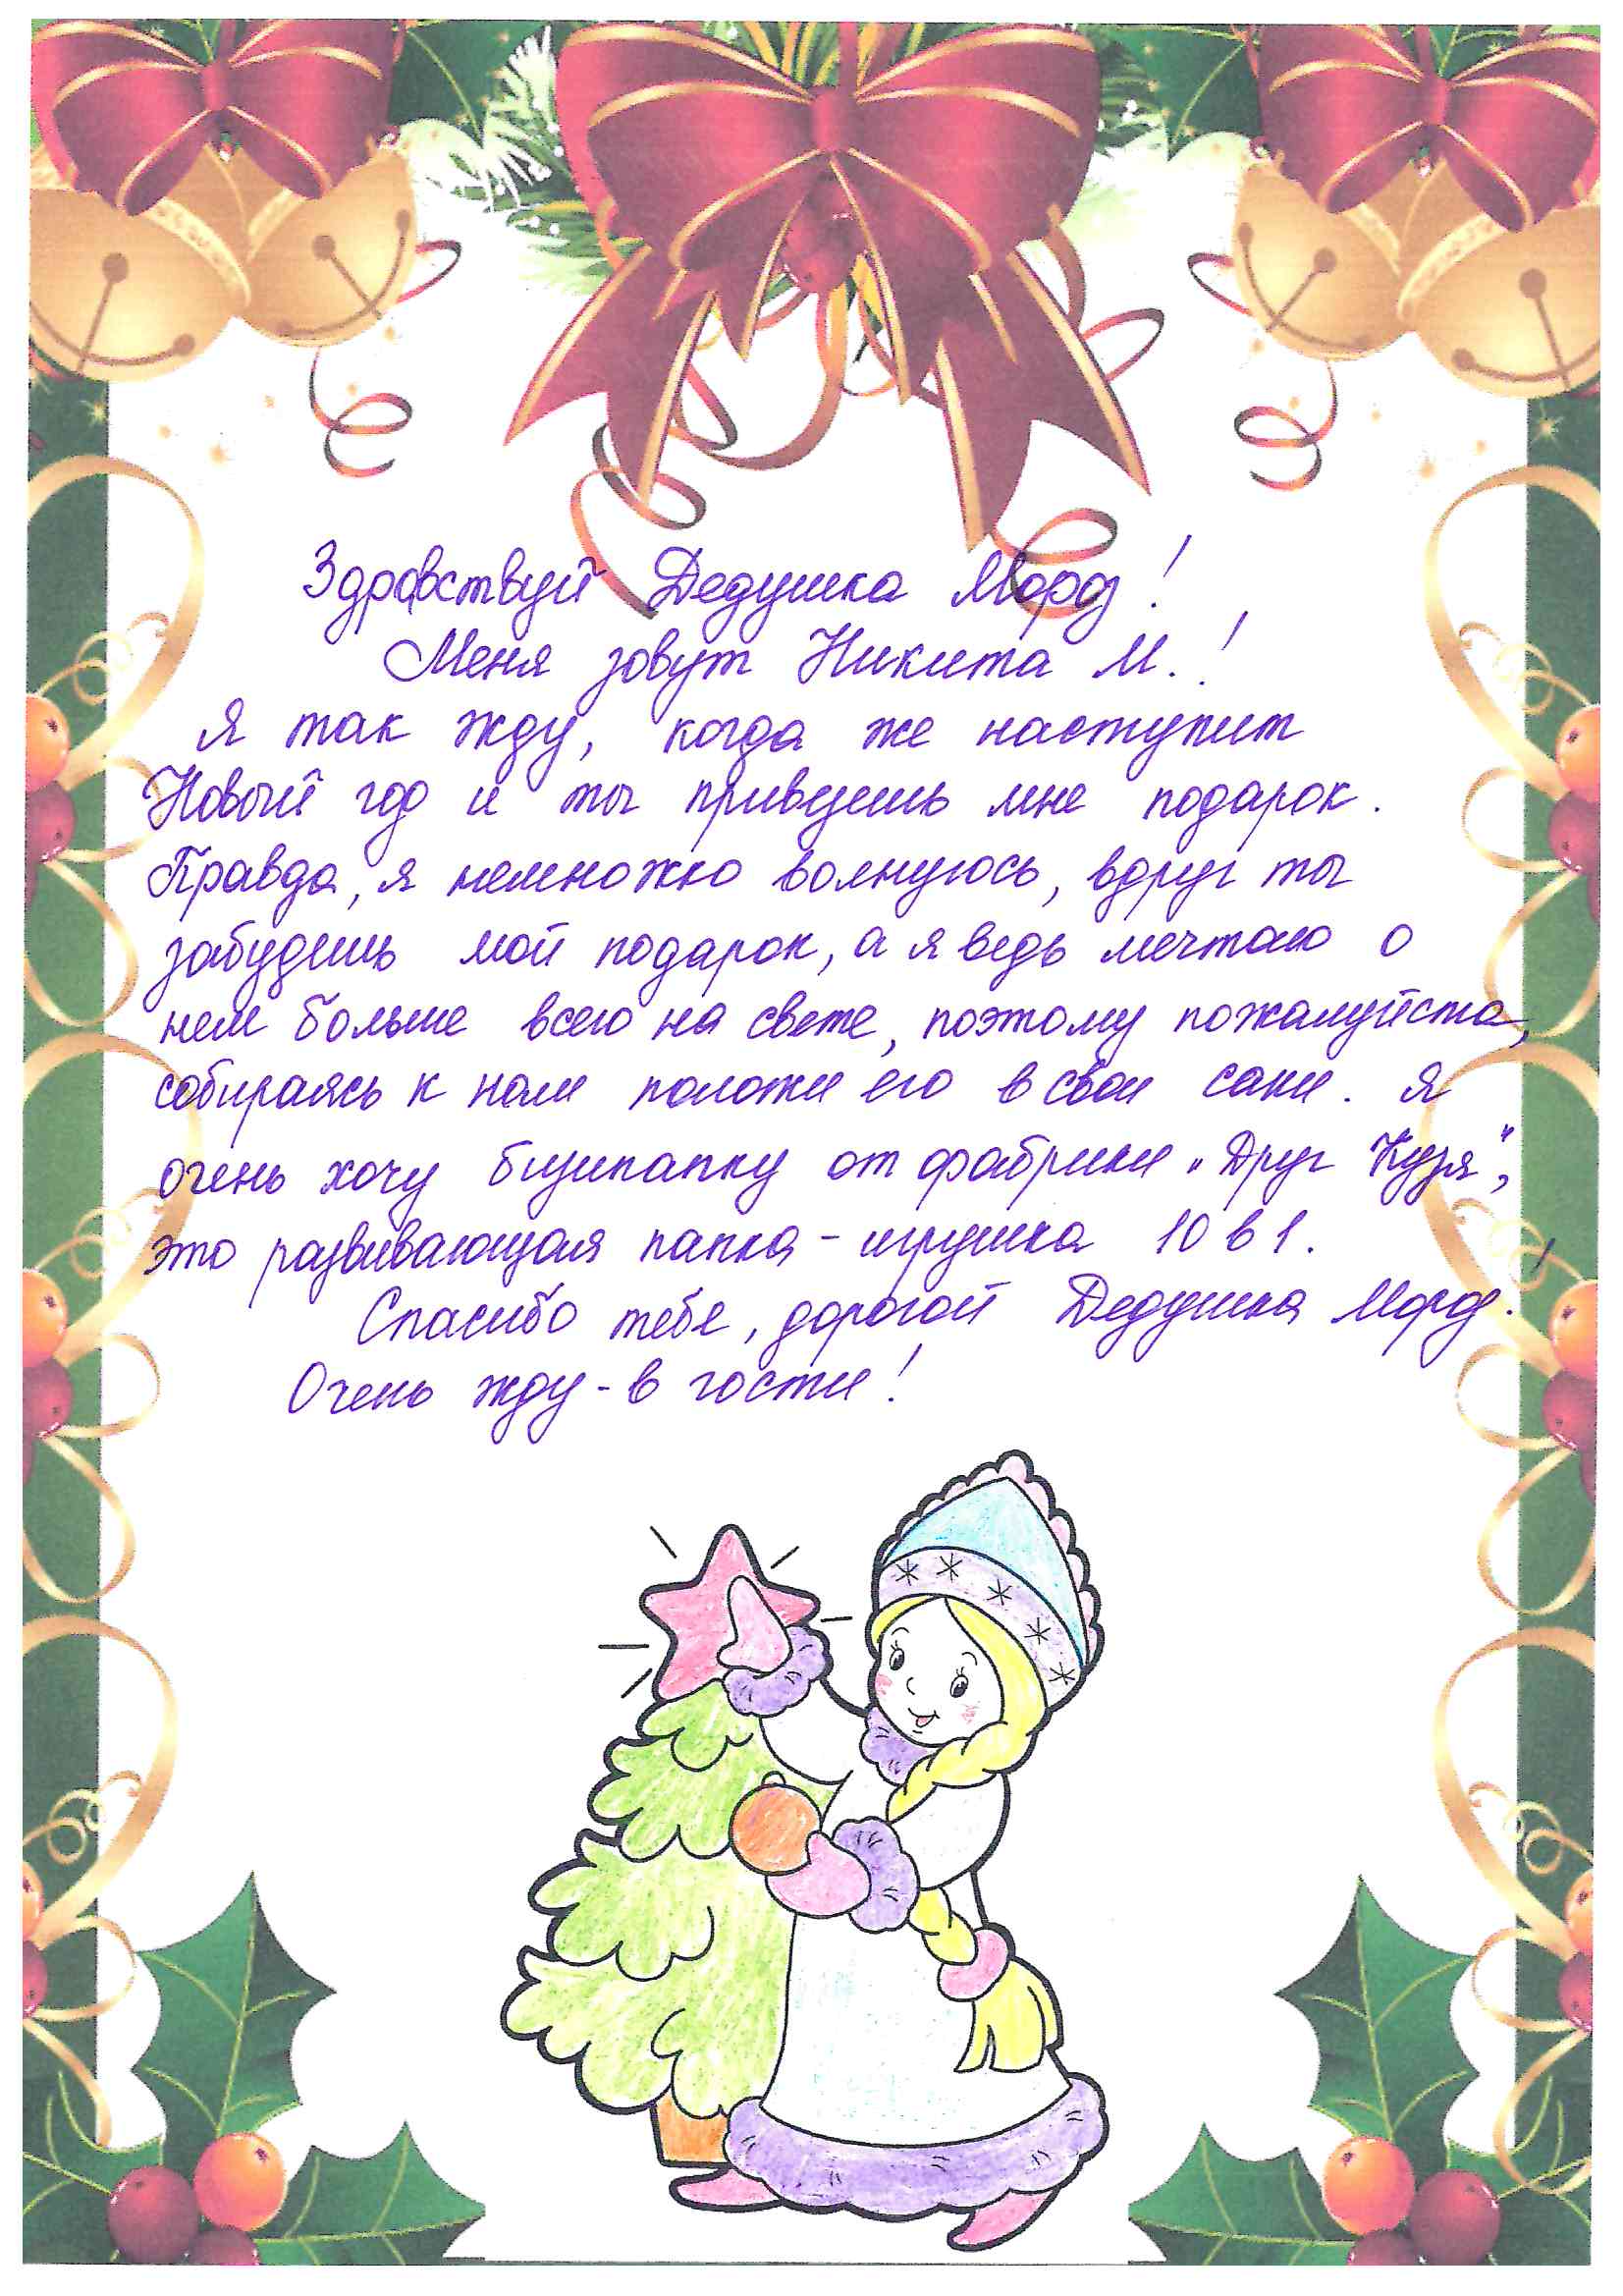 Здравствуй Дедушка Мороз!
Меня зовут Никита М.!
Я так жду, когда же наступит
Новый год и ты привезешь мне подарок.
Правда, я немножко волнуюсь, вдруг ты
забудешь мой подарок, а я ведь мечтаю о
нем больше всего на свете, поэтому пожалуйста,
собираясь к нам положи его в свои сани. Я
очень хочу бизипапку от фабрики "Друг Кузя",
это развивающая папка - игрушка 10 в 1.
Спасибо тебе, дорогой Дедушка Мороз!
Очень жду - в гости!